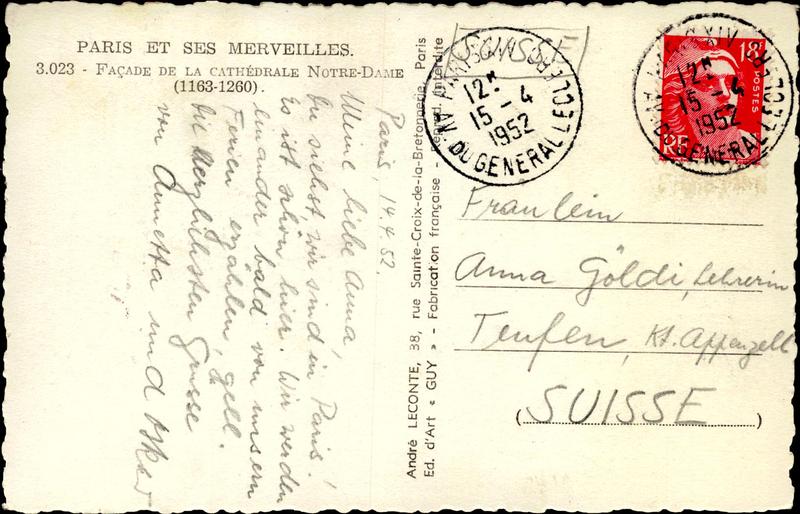 PARIS ET SES MERVEILLES.
3.023 - FAÇADE DE LA CATHÉDRALE NOTRE-DAME
(1163-1260).
Paris, 14.4.52.
Meine liebe Anna!
Du siehst wir sind in Paris!
Es ist schön hier. Wir werden
einander bald von unsern
Ferien erzählen, gell.
Die herzlichsten Grüsse
von Annetta und Oskar
André LECONTE, 38, rue Sainte-Croix-de-la-Bretonnerie, Paris
Ed. d'Art « GUY » - Fabrication française - Reprod. Interdite
SUISSE
PARIS XIV
12H
15-4
1952
AV. DU GENERAL LECLERC
18F
POSTES
RF
PARIS XIV
12H
15-4
1952
AV. DU GENERAL LECLERC
Fräulein
Anna Göldi, Lehrerin
Teufen, Kt. Appenzell
(SUISSE)